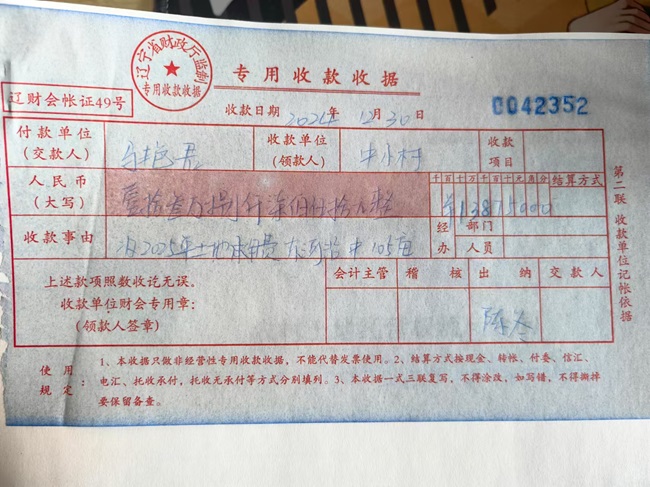 辽宁省财政厅监制
专用收款收据
专用收款收据
辽财会帐证49号
收款日期 2024年 12月 30日
0042352
付款单位
(交款人)
收款单位
(领款人)
中小村
收款
项目
人民币
(大写)
千百十万千百十元角分
结算方式
¥13875000
收款事由
2025年土地承包费
105亩
经 部门
办 人员
上述款项照数收讫无误。
收款单位财会专用章:
(领款人签章)
会计主管
稽核
出纳
交款人
第二联 收款单位记帐依据
使用
规定
1、本收据只做非经营性专用收款收据,不能代替发票使用。2、结算方式按现金、转帐、付委、信汇、
电汇、托收承付,托收无承付等方式分别填列。3、本收据一式三联复写,不得涂改,如写错,不得撕掉
要保留备查。